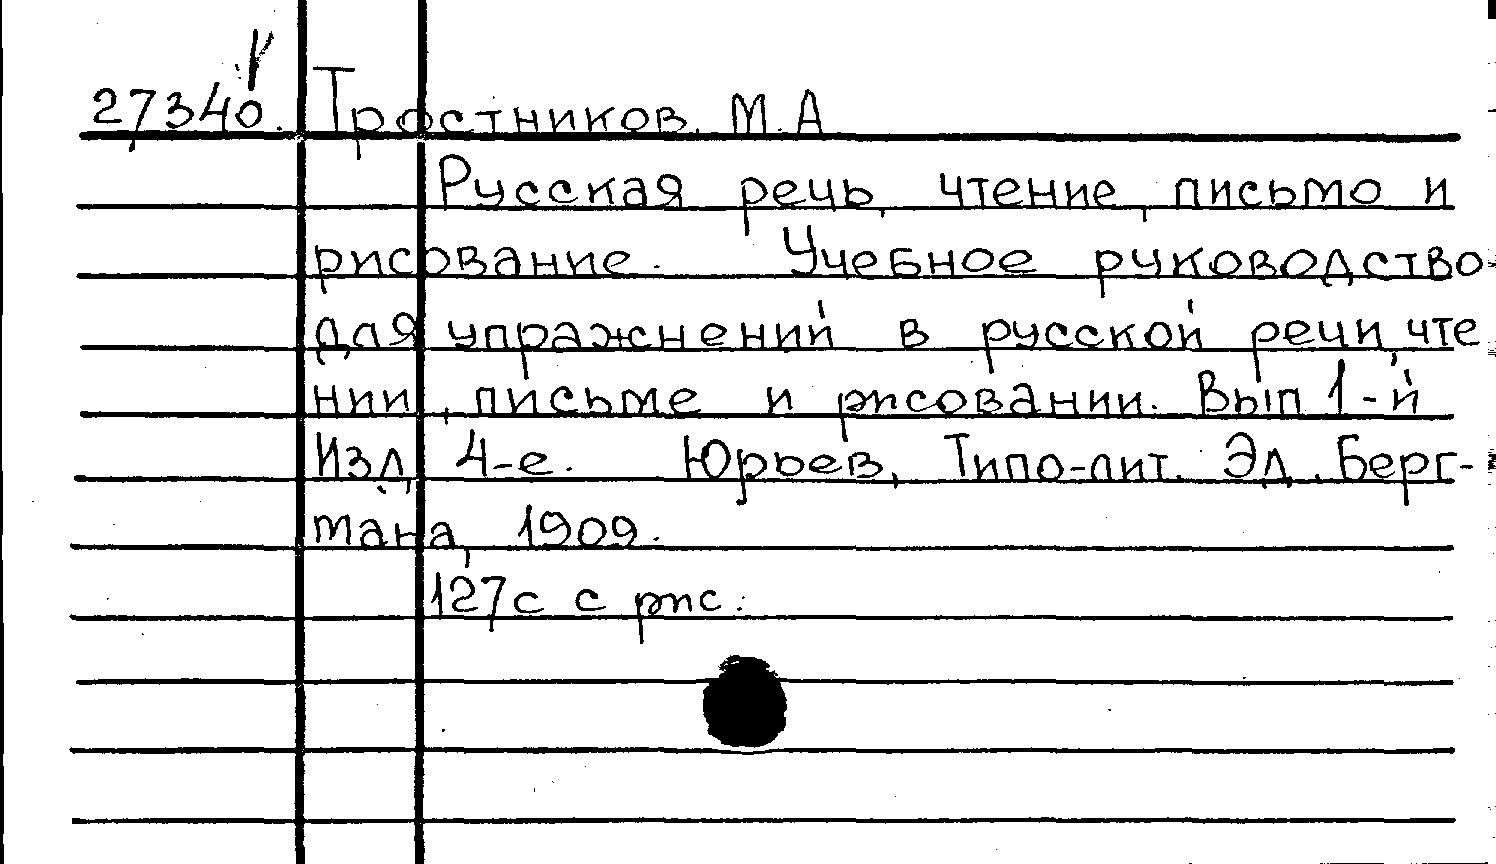 27340. Тростников. М.А
Русская речь, чтение, письмо и
рисование. Учебное руководство
для упражнений в русской речи, чте
нии, письме и рисовании. Вып 1-й
Изд. 4-е. Юрьев, Типо-лит. Эд. Берг-
мана, 1909.
127с с рис.